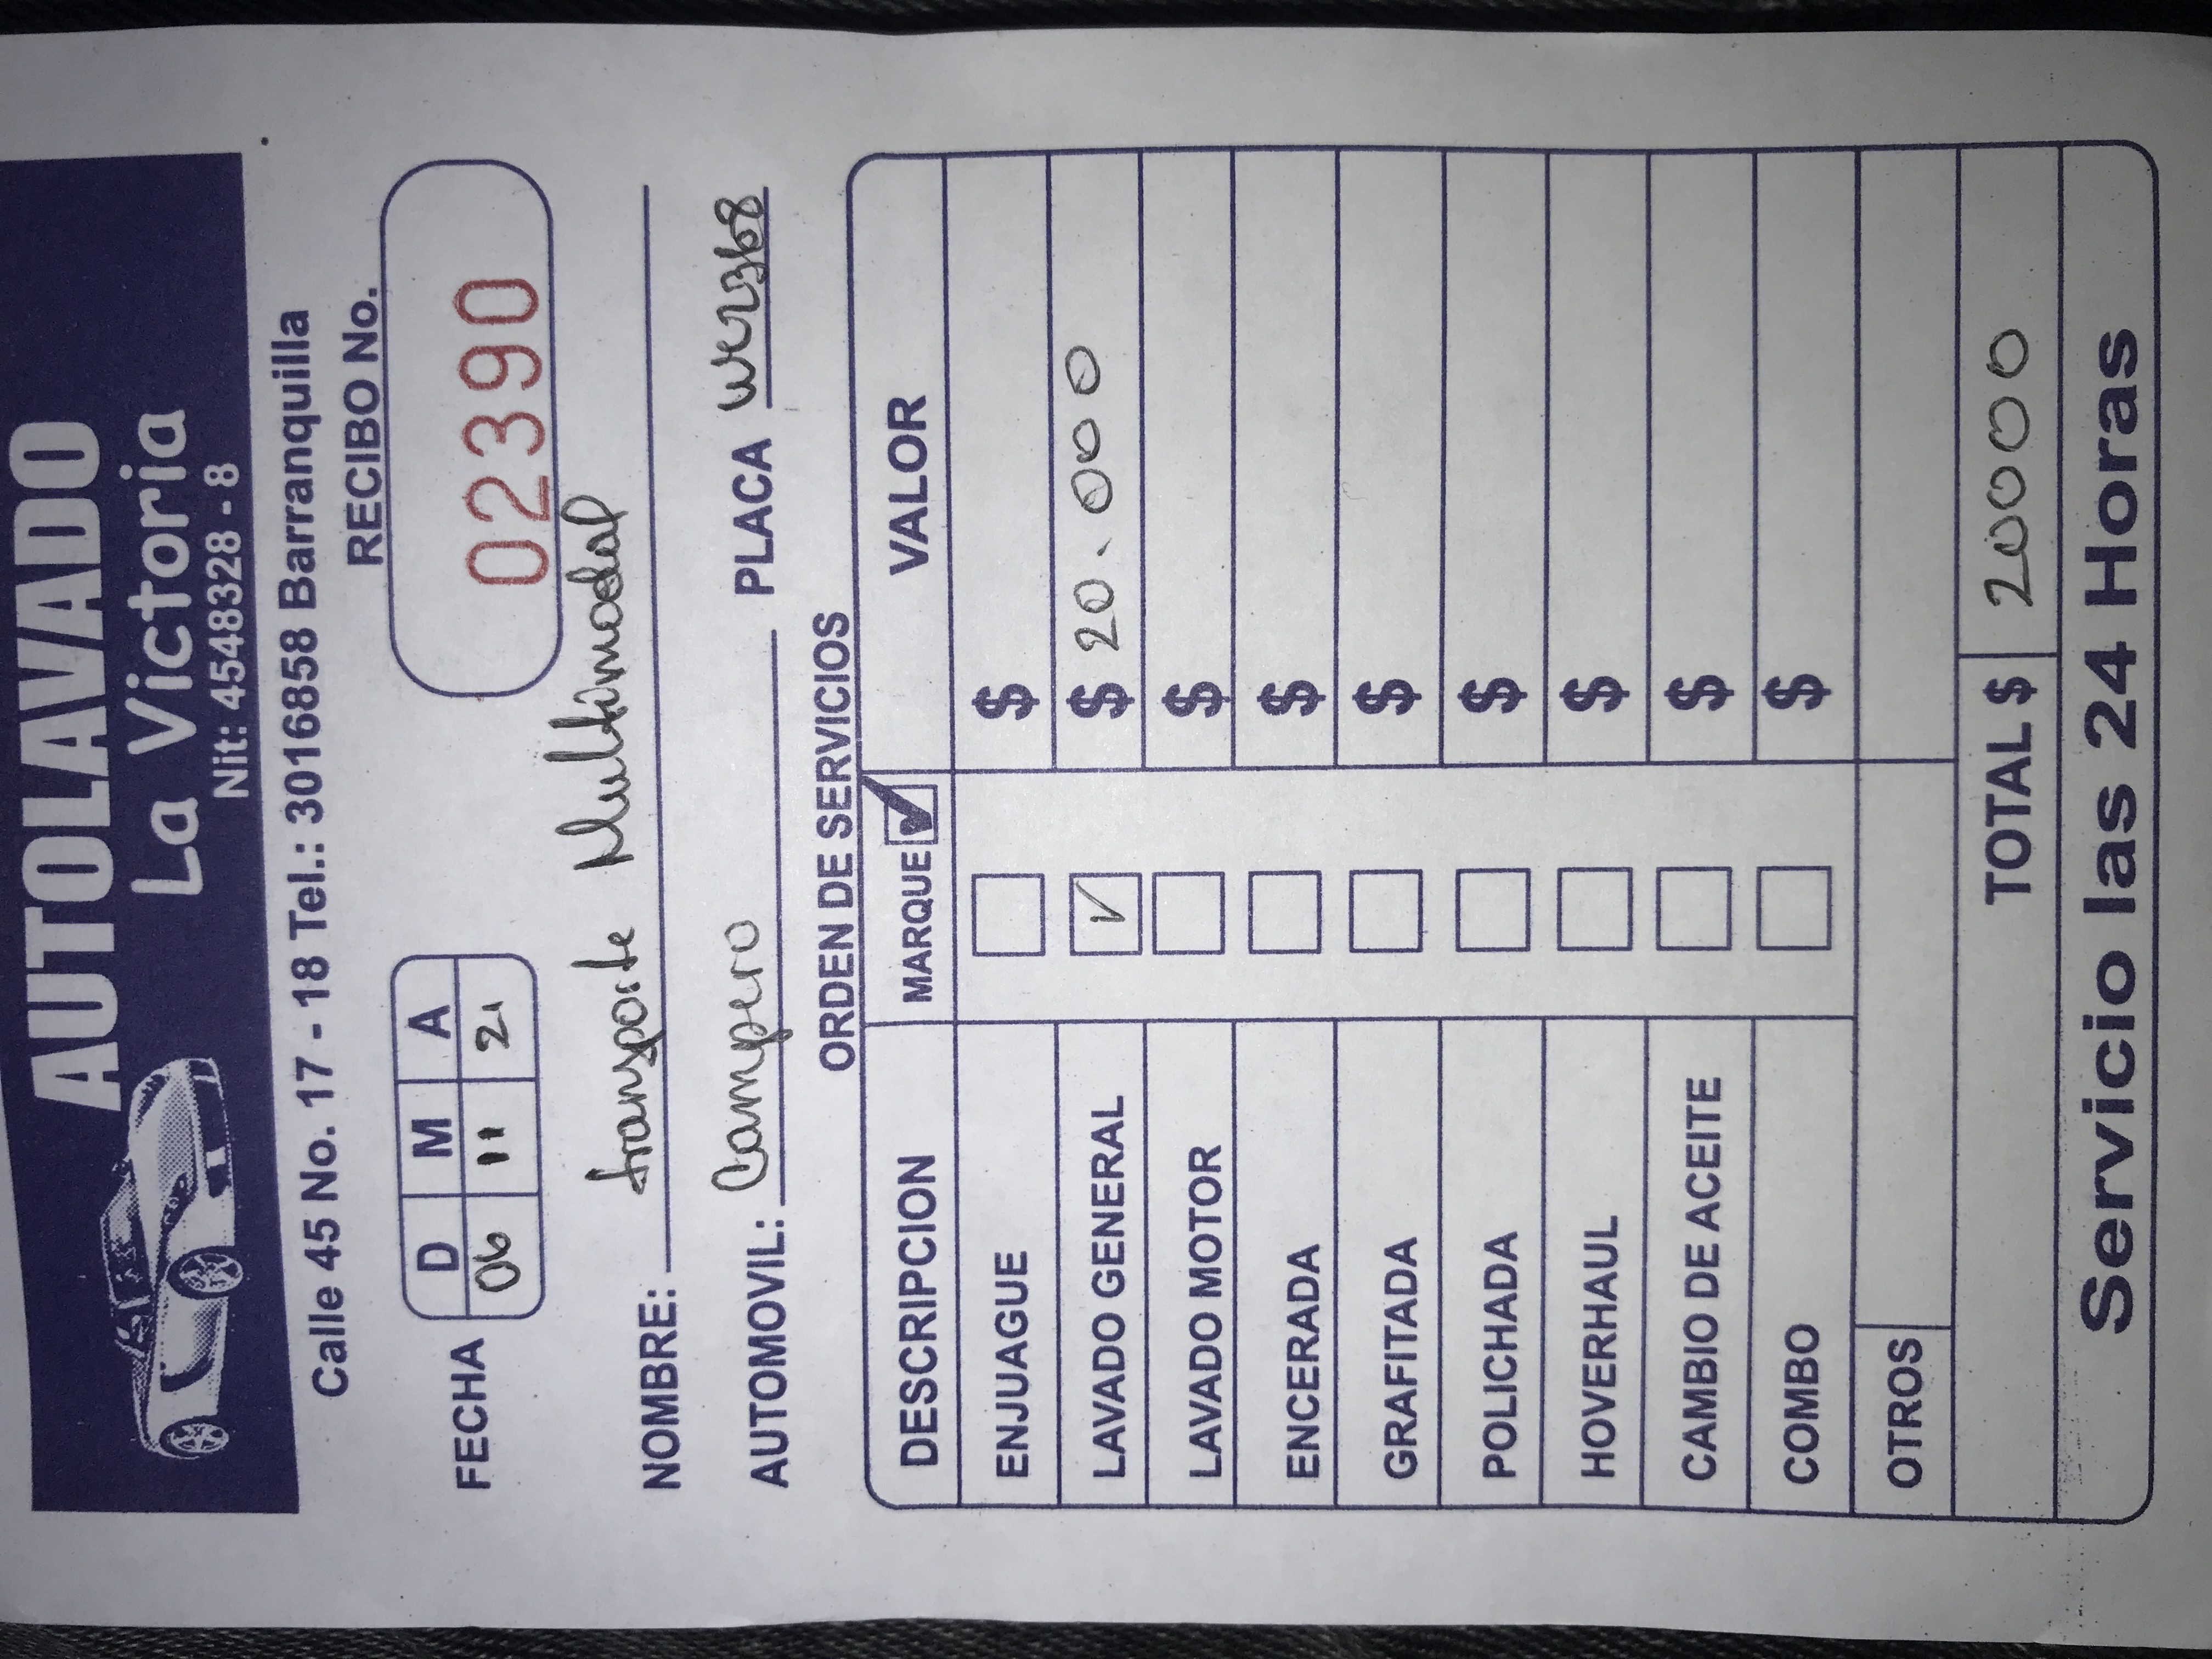 AUTOLAVADO
La Victoria
Nit: 45483328 - 8
Calle 45 No. 17 - 18 Tel.: 3016858 Barranquilla
RECIBO No.
FECHA D M A
06 11 21
02390
NOMBRE: transporte Multimodal
AUTOMOVIL: Campero PLACA
ORDEN DE SERVICIOS
DESCRIPCION MARQUE VALOR
ENJUAGUE $
LAVADO GENERAL $ 20.000
LAVADO MOTOR $
ENCERADA $
GRAFITADA $
POLICHADA $
HOVERHAUL $
CAMBIO DE ACEITE $
COMBO $
OTROS
TOTAL $ 20000
Servicio las 24 Horas